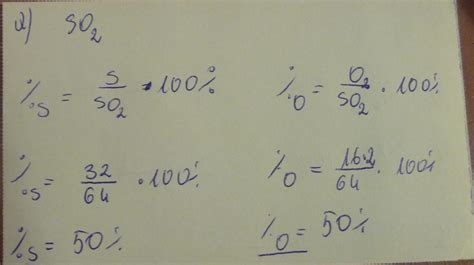 a) SO₂
%S = S/SO₂ · 100%
%O = O₂/SO₂ · 100%
%S = 32/64 · 100%
%O = 16·2/64 · 100%
%S = 50%
%O = 50%